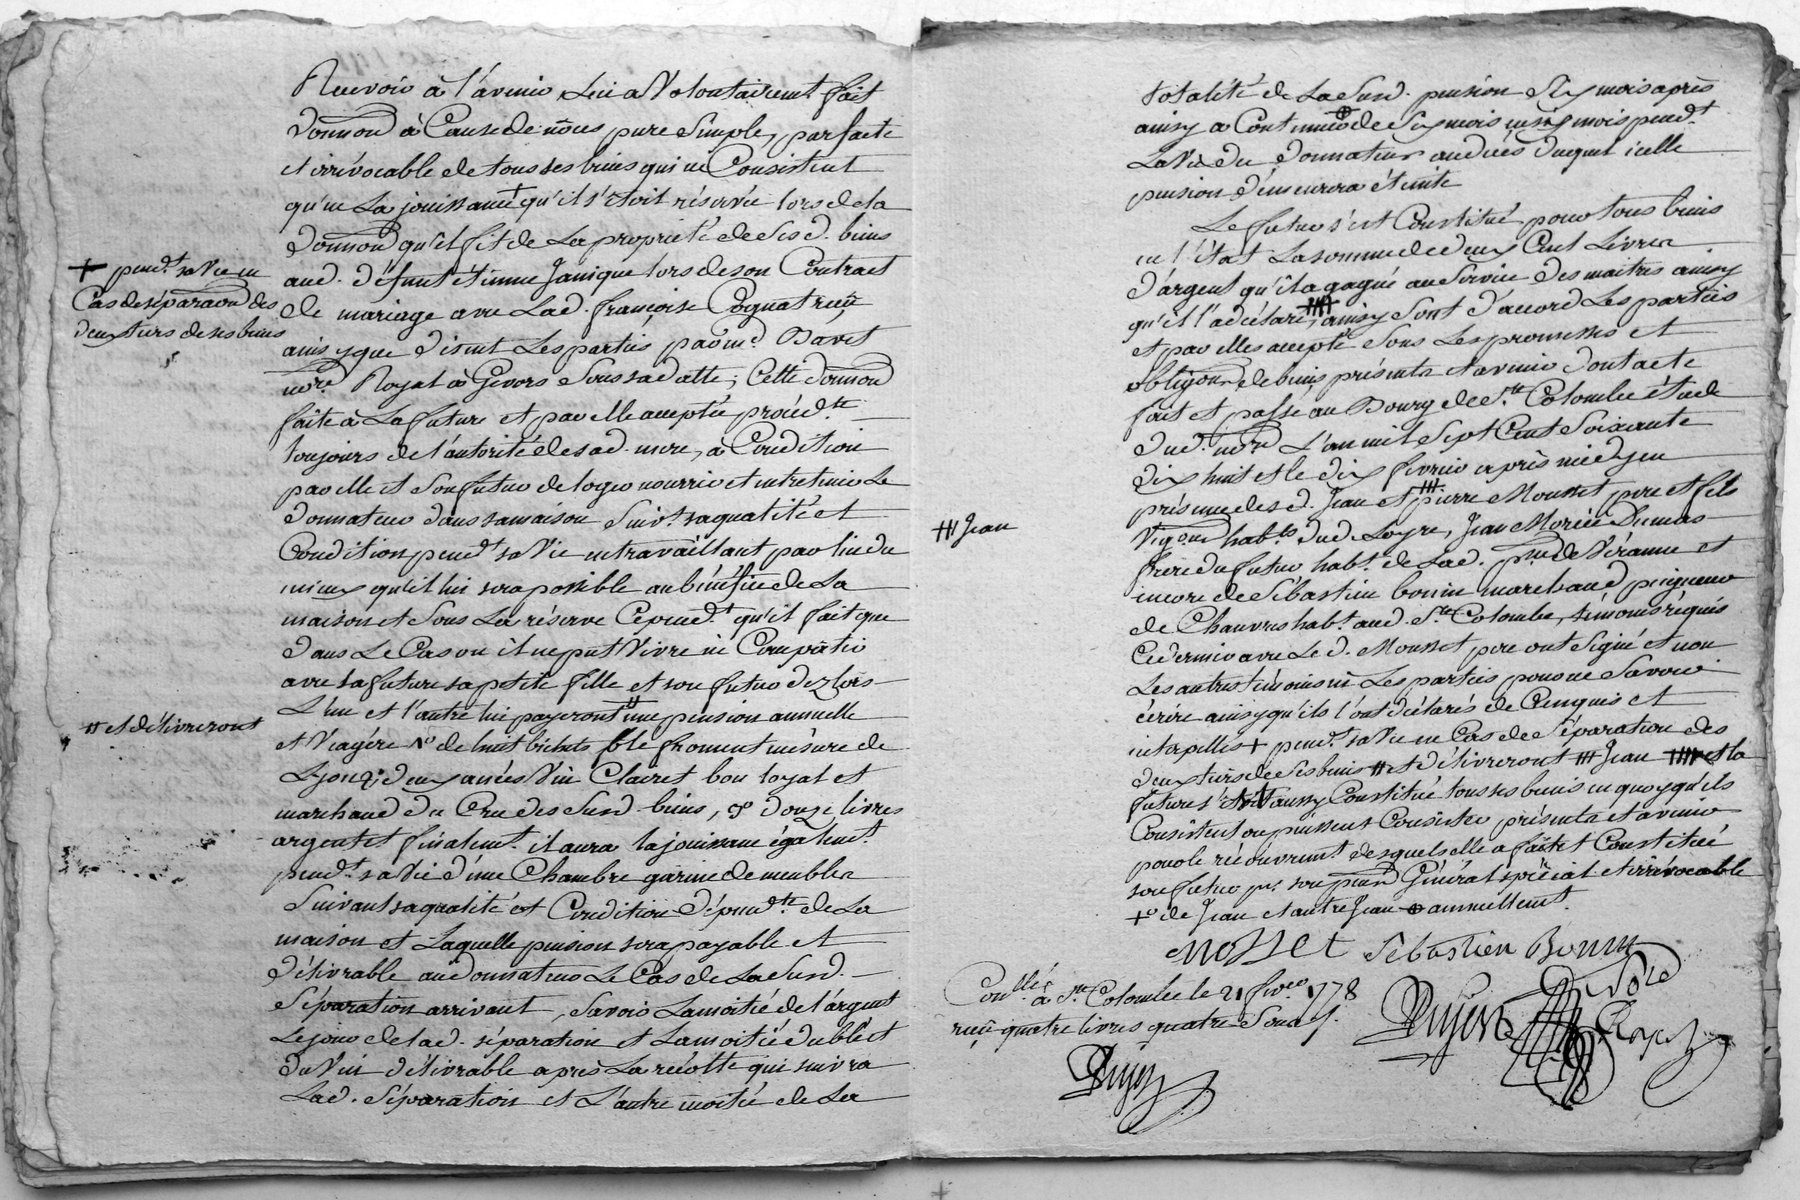 Recevoir à l'avenir, lui a Volontairemt. fait
Donnaon à Cause de nôces pure Simple, parfaite
et irrévocable de tous ses biens qui ne Consistent
qu'en La jouissance + qu'il s'étoit réservée lors de la
Donnaon qu'il fit de La propriété de Sesd. biens
aud. défunt étienne Janique lors de son Contract
de mariage avec Lad. françoise Cognat reçu
ainsy que disent Les parties par me. Davet
nore. Royal à Givors Sous sa datte; Cette donnaon
faite à La future et par elle acceptée procédte.
toujours de l'autorité de sad. mere, à Condition
par elle et Son futur de loger nourrir et entretenir Le
donnateur dans sa maison Suivt. sa qualité et
Condition pendt. sa Vie en travaillant par lui du
mieux qu'il lui sera possible au bénéfice de La
maison et Sous La réserve Cependt. qu'il fait que
dans Le Cas ou il ne put Vivre ni Compatir
avec sa future sa petite fille et son futur dez lors
L'un et l'autre lui payeront # une pension annuelle
et Viagére 1o. de huit bichets blé froment mésure de
Lyon, 2o. deux anées Vin Clairet bon loyal et
marchand du Cru des Susd. biens, 3o. douze livres
argent et finalemt. il aura la jouissance égalemt.
pendt. sa Vie d'une Chambre garnie de meubles
Suivant sa qualité et Condition dépendte. de La
maison et Laquelle pension sera payable et
délivrable au donnateur Le Cas de La Susd.
Séparation arrivant, Savoir La moitié de l'argent
Le jour de lad. séparation et La moitié du blé et
du Vin délivrable après La récolte qui suivra
Lad. Séparation et L'autre moitié de La
+ pendt. sa Vie en
Cas de séparaon des
deux tiers de ses biens
# et délivreront
totalité de La Susd. pension Six mois après
ainsy à Continuer ⊕ de Six mois en six mois pendt.
La Vie du donnateur au décés duquel icelle
pension démeurera éteinte
Le futur s'est Constitué pour tous biens
en l'état La somme de deux Cent Livres
d'argent qu'il a gagné au Service des maitres ainsy
qu'il l'a déclaré, #### ainsy Sont d'accord Les parties
et par elles accepté Sous Les promesses et
obligaons de biens présents et avenir dont acte
fait et passé au Bourg de Ste. Colombe étude
dud. nore. L'an mil Sept Cent Soixante
dix huit et le dix fevrier après midy en
présence desd. Jean et ### pierre Mousset pere et fils
Vignerons habts. dud. Loyre, Jean Morice Dumas
frere du futur habt. de Lad. psse. de Véranne et
encore de Sébastien bonin marchand peigneur
de Chanvres habt. aud. Ste. Colombe, témoins réquis
Ce dernier avec Le d. Mousset pere ont Signé et non
Les autres témoins ni Les parties pour ne Savoir
écrire ainsy qu'ils l'ont déclarés de Cenquis et
interpellés + pendt. sa Vie en Cas de Séparation des
deux tiers de Ses biens # et délivreront ### Jean #### et la
future s'est aussy Constitué tous ses biens en quoy qu'ils
Consistent ou puissent Consister présents et avenir
pour le récouvremt. desquels elle a fait et Constitué
son futur pr. son procur. Général spécial et irrévocable
+o de Jean et autre Jean ⊕ annuellemt.
### Jean
mosset Sébastien Bonin
Conllé. à Ste. Colombe le 21 fvrer. 1778
reçu quatre livres quatre Sous